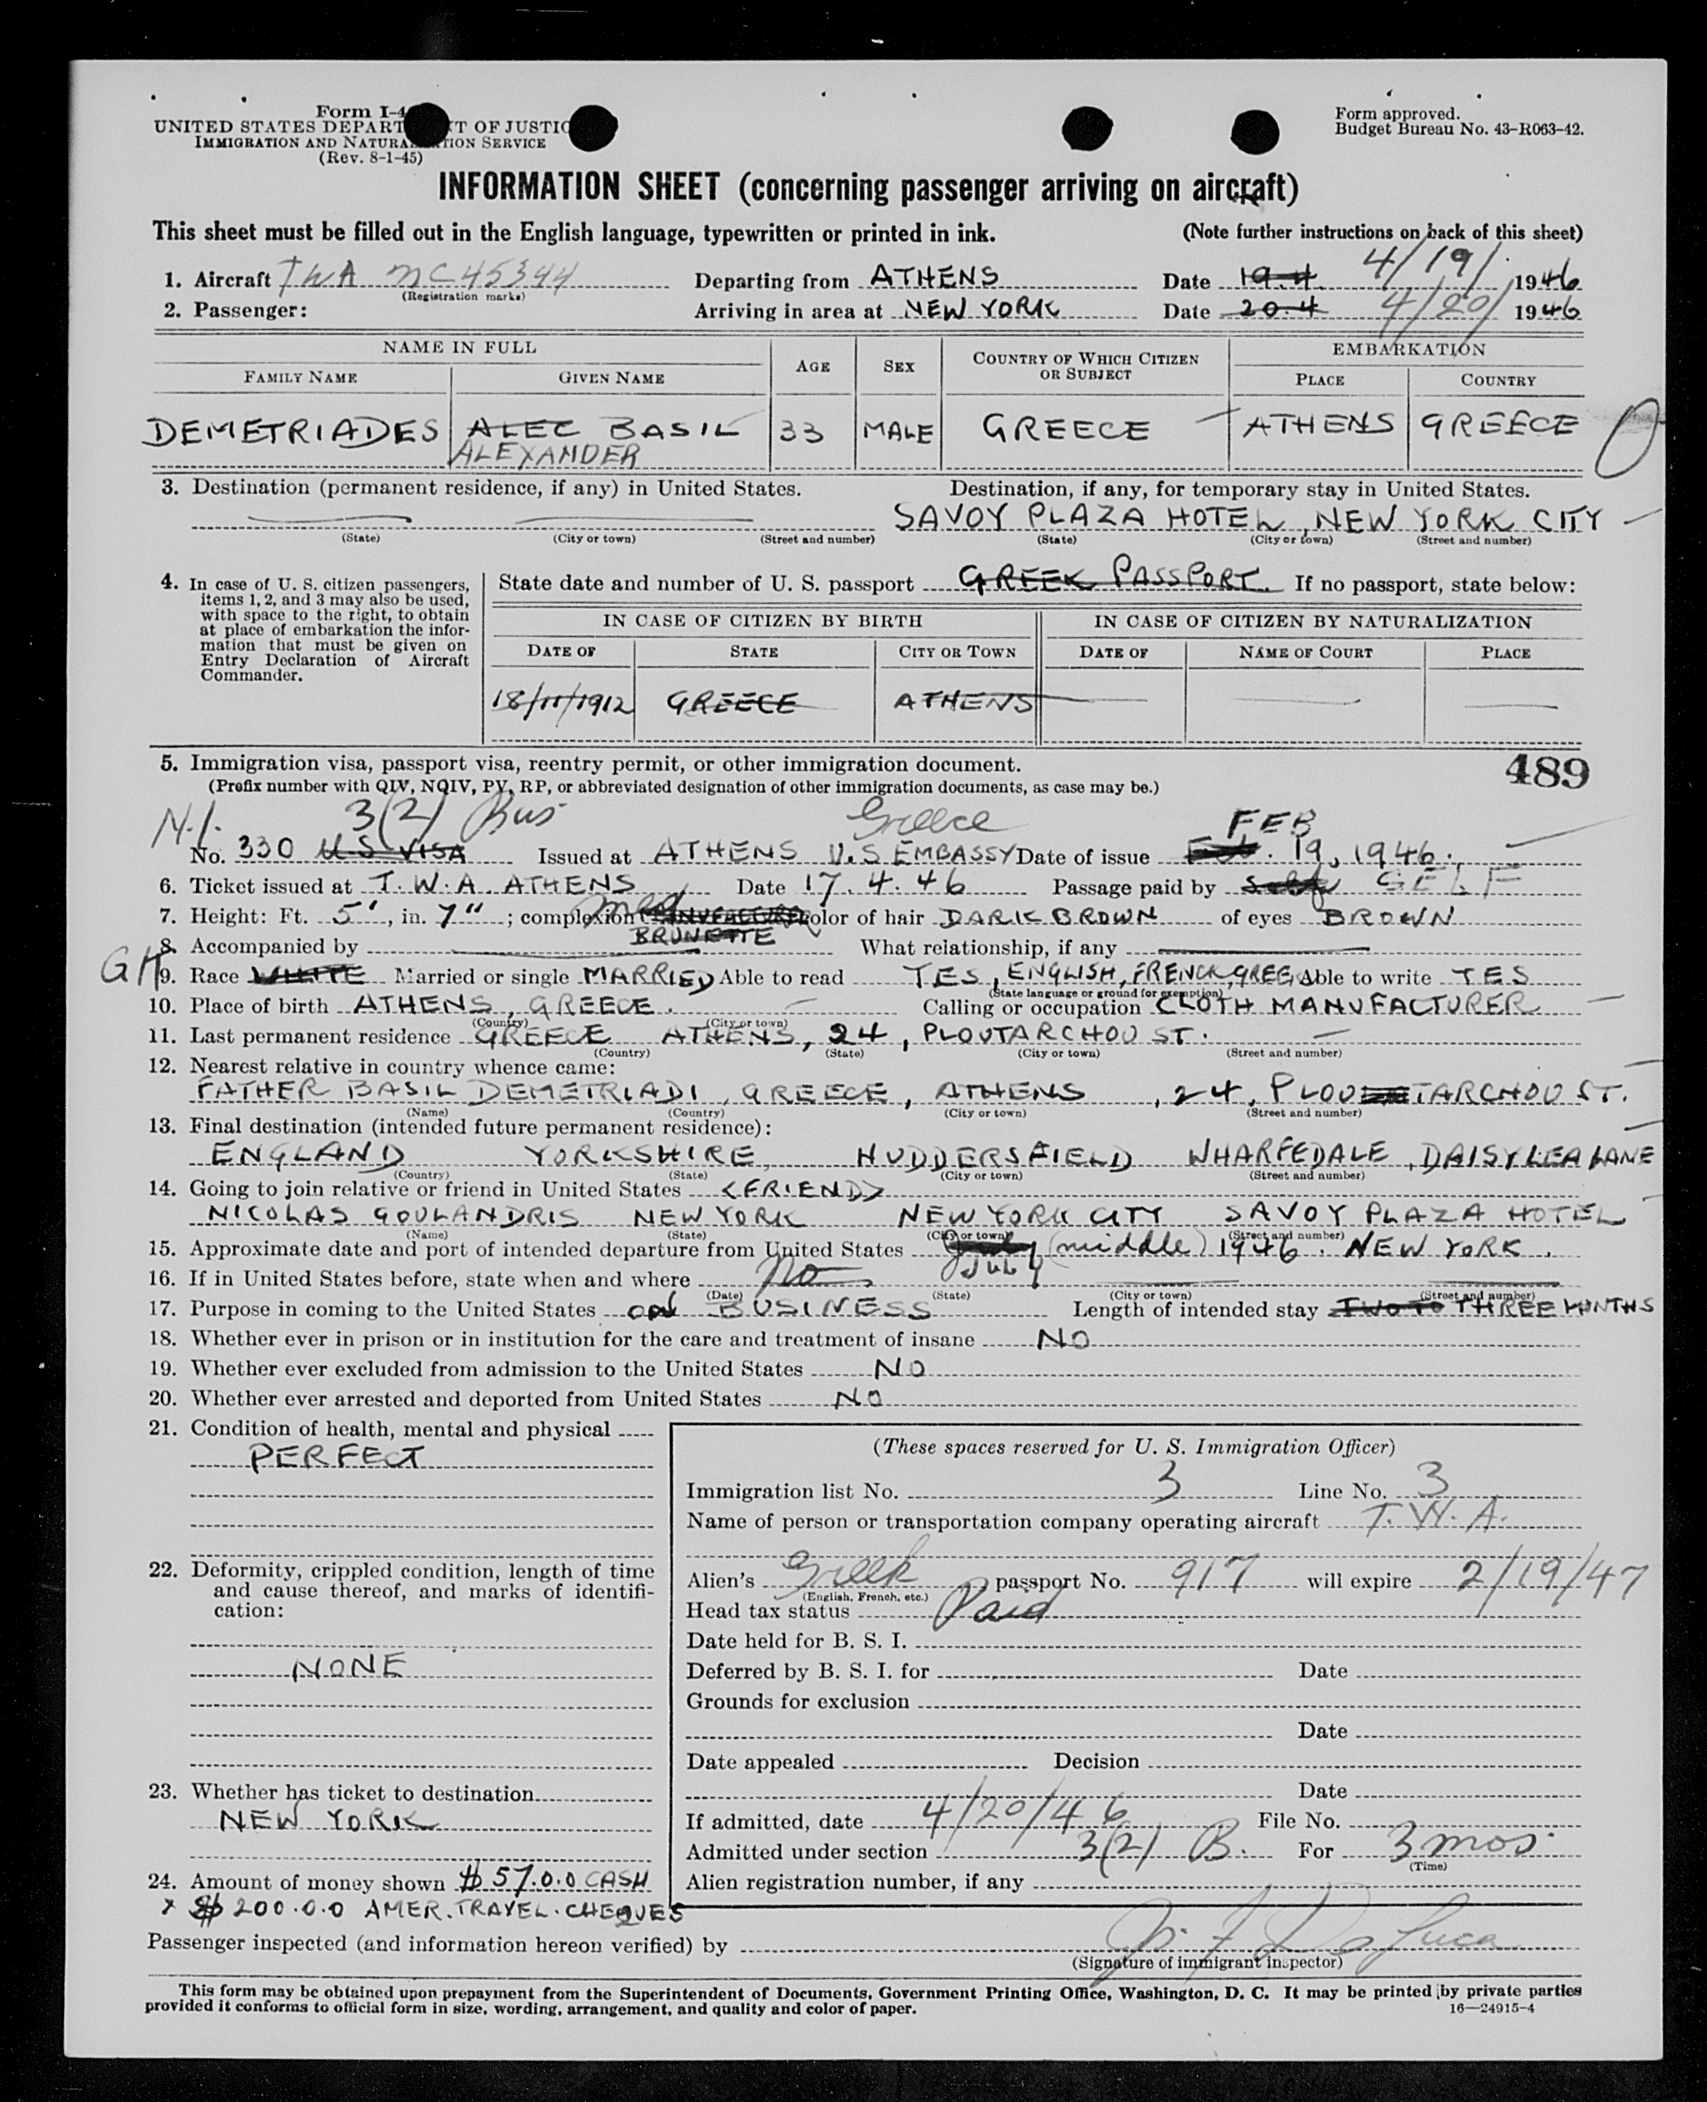 Form I-4
UNITED STATES DEPARTMENT OF JUSTICE
IMMIGRATION AND NATURALIZATION SERVICE
(Rev. 8-1-45)
Form approved.
Budget Bureau No. 43-R063-42.
INFORMATION SHEET (concerning passenger arriving on aircraft)
This sheet must be filled out in the English language, typewritten or printed in ink. (Note further instructions on back of this sheet)
1. Aircraft TWA NC45344 Departing from ATHENS Date 19.4 4/19/ 1946
(Registration marks)
2. Passenger: Arriving in area at NEW YORK Date 20.4 4/20/ 1946
NAME IN FULL AGE SEX COUNTRY OF WHICH CITIZEN OR SUBJECT EMBARKATION
FAMILY NAME GIVEN NAME PLACE COUNTRY
DEMETRIADES ALEC BASIL 33 MALE GREECE ATHENS GREECE
ALEXANDER
3. Destination (permanent residence, if any) in United States. Destination, if any, for temporary stay in United States.
SAVOY PLAZA HOTEL, NEW YORK CITY
(State) (City or town) (Street and number) (State) (City or town) (Street and number)
4. In case of U. S. citizen passengers, items 1, 2, and 3 may also be used, with space to the right, to obtain at place of embarkation the information that must be given on Entry Declaration of Aircraft Commander.
State date and number of U. S. passport GREEK PASSPORT. If no passport, state below:
IN CASE OF CITIZEN BY BIRTH IN CASE OF CITIZEN BY NATURALIZATION
DATE OF STATE CITY OR TOWN DATE OF NAME OF COURT PLACE
18/11/1912 GREECE ATHENS
5. Immigration visa, passport visa, reentry permit, or other immigration document. 489
(Prefix number with QIV, NQIV, PV, RP, or abbreviated designation of other immigration documents, as case may be.)
N.I. 3(2) Bus Greece FEB
No. 330 U.S VISA Issued at ATHENS U.S EMBASSY Date of issue Feb. 19, 1946.
6. Ticket issued at T.W.A. ATHENS Date 17.4.46 Passage paid by Self SELF
7. Height: Ft. 5', in. 7"; complexion med MANUFACTURER color of hair DARK BROWN of eyes BROWN
BRUNETTE
8. Accompanied by What relationship, if any
GH 9. Race WHITE Married or single MARRIED Able to read YES, ENGLISH, FRENCH, GREE Able to write YES
(State language or ground for exemption)
10. Place of birth ATHENS, GREECE. Calling or occupation CLOTH MANUFACTURER
(Country) (City or town)
11. Last permanent residence GREECE ATHENS, 24, PLOUTARCHOU ST.
(Country) (State) (City or town) (Street and number)
12. Nearest relative in country whence came:
FATHER BASIL DEMETRIADI, GREECE, ATHENS, 24, PLOUTARCHOU ST.
(Name) (Country) (City or town) (Street and number)
13. Final destination (intended future permanent residence):
ENGLAND YORKSHIRE, HUDDERSFIELD WHARFEDALE, DAISY LEA LANE
(Country) (State) (City or town) (Street and number)
14. Going to join relative or friend in United States <FRIEND>
NICOLAS GOULANDRIS NEW YORK NEW YORK CITY SAVOY PLAZA HOTEL
(Name) (State) (City or town) (Street and number)
15. Approximate date and port of intended departure from United States July (middle) 1946. NEW YORK.
JULY
16. If in United States before, state when and where No
(Date) (State) (City or town) (Street and number)
17. Purpose in coming to the United States on BUSINESS Length of intended stay TWO TO THREE MONTHS
18. Whether ever in prison or in institution for the care and treatment of insane NO
19. Whether ever excluded from admission to the United States NO
20. Whether ever arrested and deported from United States NO
21. Condition of health, mental and physical
PERFECT
22. Deformity, crippled condition, length of time and cause thereof, and marks of identification:
NONE
23. Whether has ticket to destination
NEW YORK
24. Amount of money shown $57.0.0 CASH
x $200.0.0 AMER. TRAVEL. CHEQUES
(These spaces reserved for U. S. Immigration Officer)
Immigration list No. 3 Line No. 3
Name of person or transportation company operating aircraft T.W.A.
Alien's Greek passport No. 917 will expire 2/19/47
(English, French, etc.)
Head tax status Paid
Date held for B. S. I.
Deferred by B. S. I. for Date
Grounds for exclusion
Date
Date appealed Decision
Date
If admitted, date 4/20/46 File No.
Admitted under section 3(2) B. For 3 mos.
(Time)
Alien registration number, if any
Passenger inspected (and information hereon verified) by
(Signature of immigrant inspector)
This form may be obtained upon prepayment from the Superintendent of Documents, Government Printing Office, Washington, D. C. It may be printed by private parties
provided it conforms to official form in size, wording, arrangement, and quality and color of paper. 16—24915-4